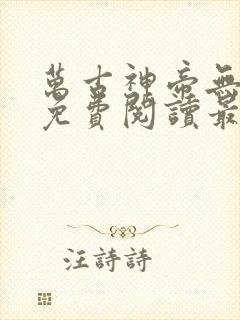 萬古神帝無
免費閱讀最
汪詩詩